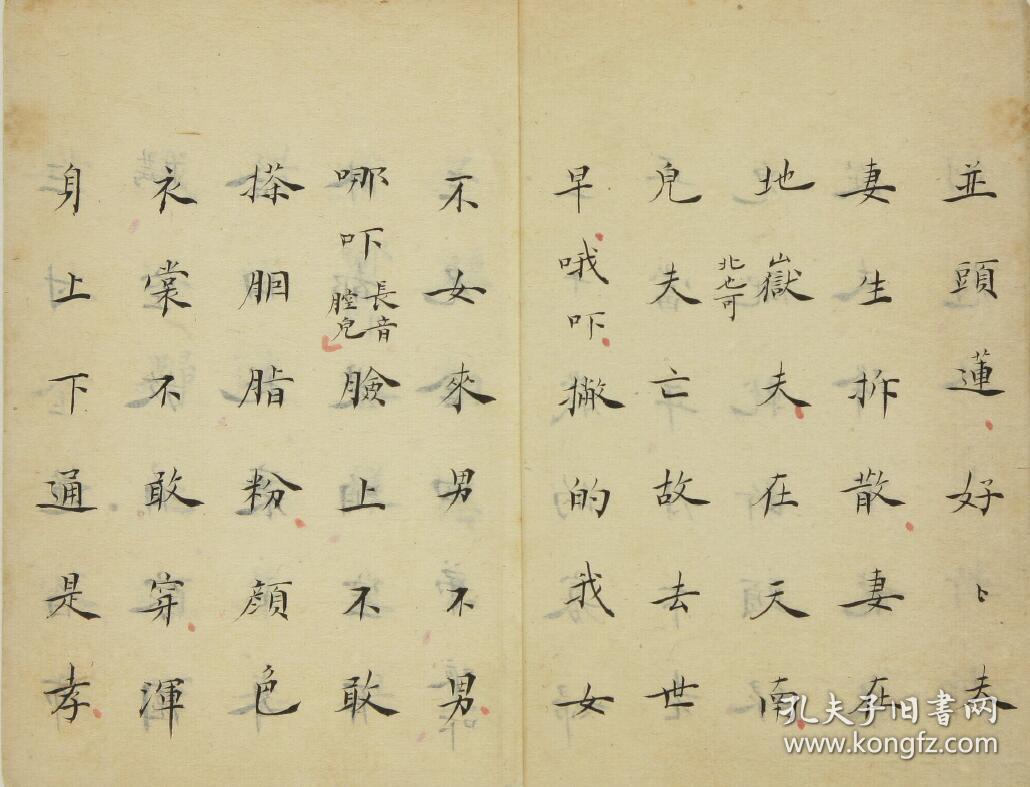 並頭蓮好〻夫
妻生拆散妻在
地獄夫在天南
北也可
皃夫亡故去世
早哦吓撇的我女
不女來男不男
哪吓長音
腔皃
臉上不敢
搽胭脂粉顔色
衣棠不敢穿渾
身上下通是孝
孔夫子旧书网
www.kongfz.com